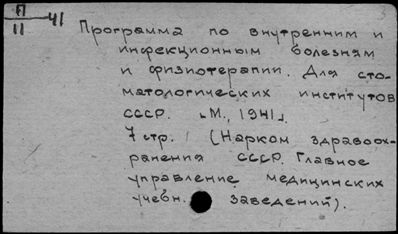 П
11 41
Программа по внутренним и
инфекционным болезням
и физиотерапии. Для сто-
матологических институтов
СССР. [М., 1941].
7 стр. (Нарком здравоох-
ранения СССР. Главное
управление медицинских
учебн. заведений).